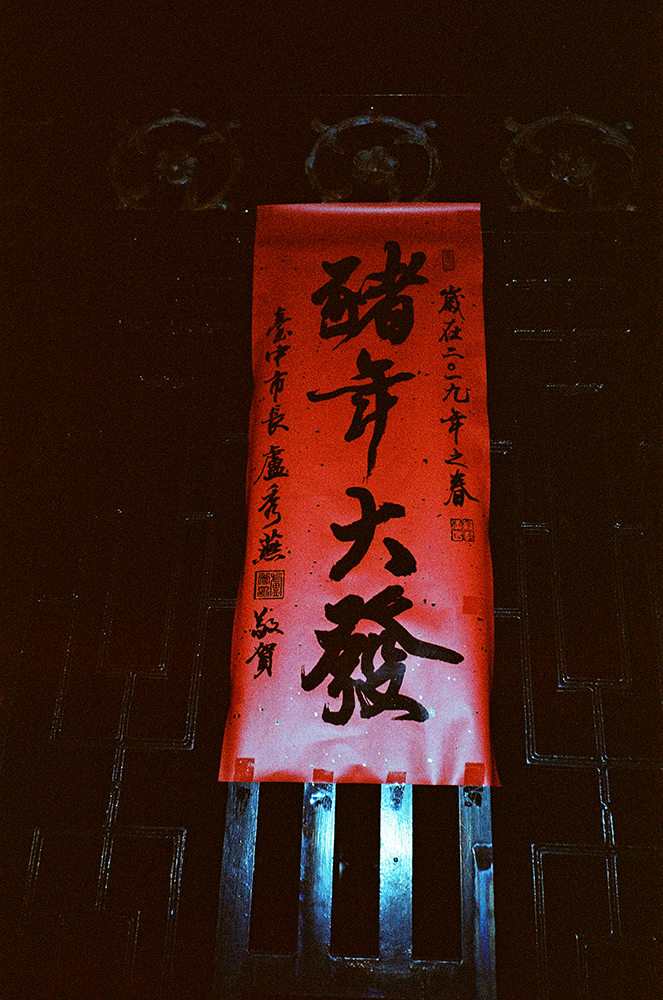 歲在二〇一九年之春
豬年大發
臺中市長 盧秀燕 敬賀